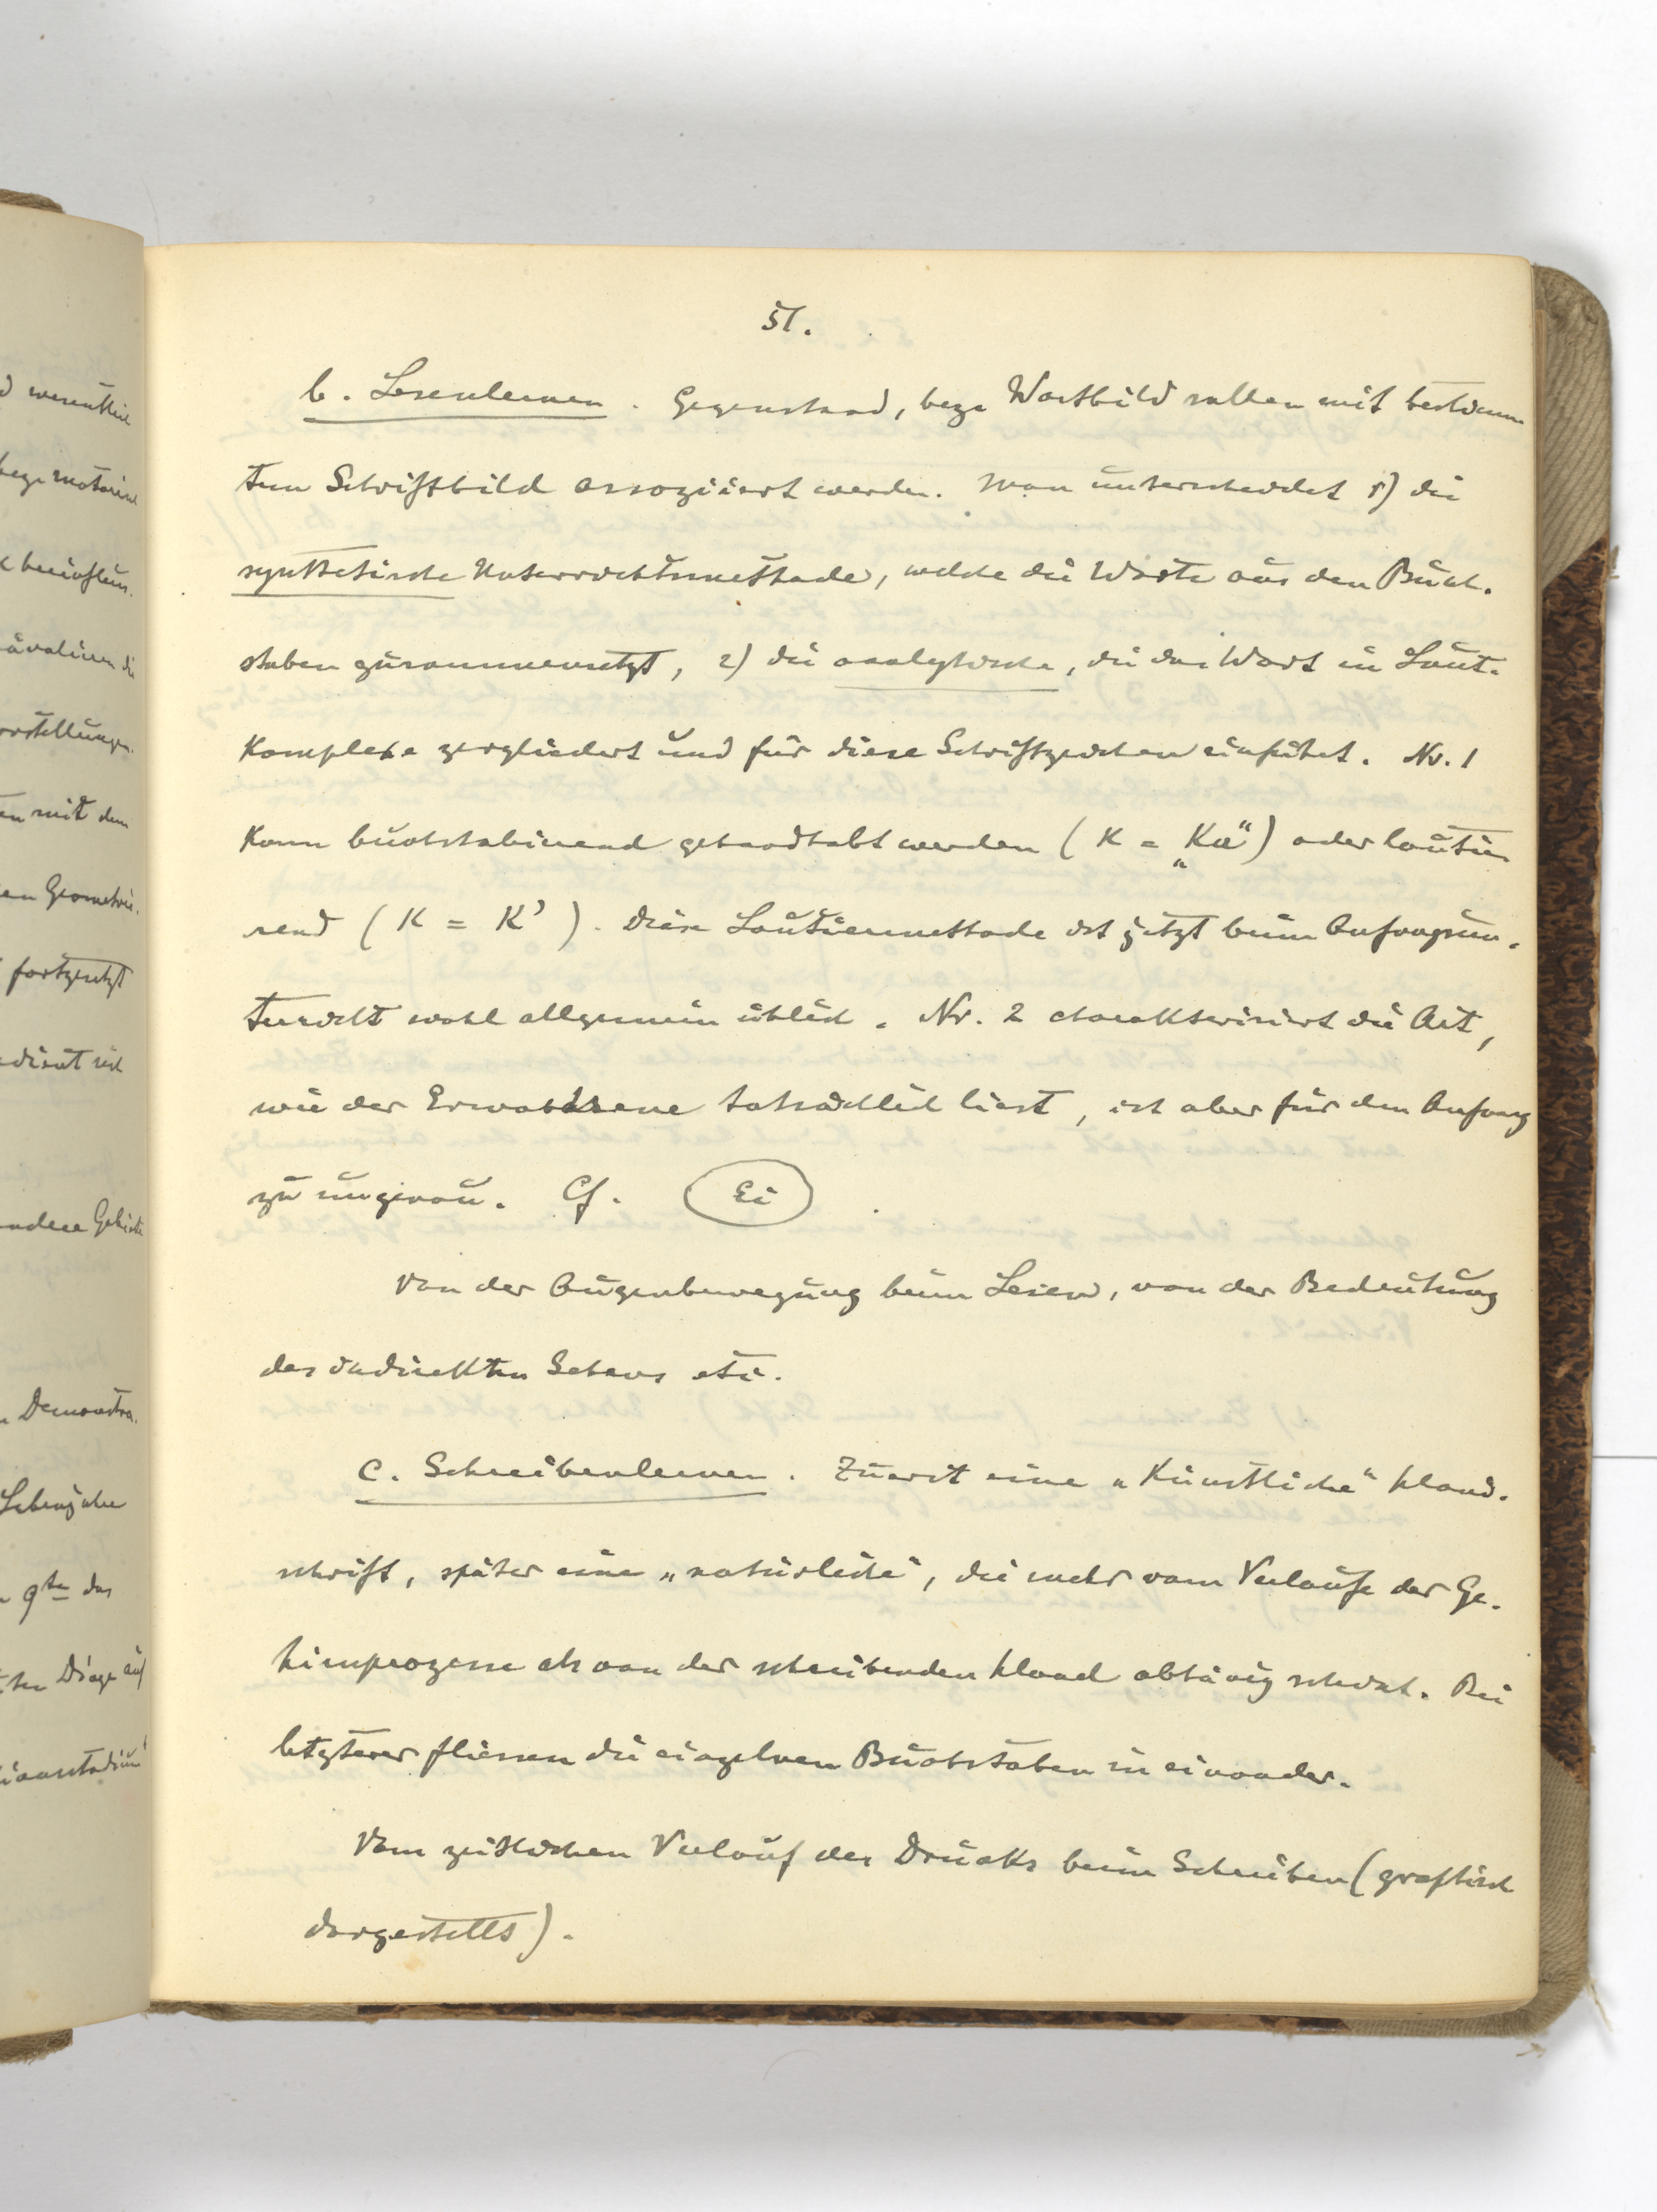 51.
b. Lesenlernen. Gegenstand, bezw. Wortbild sollen mit bestimm
tem Schriftbild assoziiert werden. Man unterscheidet 1) die
synthetische Unterrichtsmethode, welche die Worte aus den Buch-
staben zusammensetzt, 2) die analytische, die das Wort in Laut-
komplexe zergliedert und für diese Schriftzeichen einführt. Nr. 1
kann buchstabierend gehandhabt werden (K = „Ka“) oder lautie
rend (K = K'). Diese Lautiermethode ist jetzt beim Anfangsun-
terricht wohl allgemein üblich. Nr. 2 charakterisiert die Art,
wie der Erwachsene tatsächlich liest, ist aber für den Anfang
zu ungenau. Cf. Ei.
Von der Augenbewegung beim Lesen, von der Bedeutung
des indirekten Sehens etc.
c. Schreibenlernen. Zuerst eine „künstliche“ Hand-
schrift, später eine „natürliche“, die mehr vom Verlaufe der Ge-
hirnprozesse als von der schreibenden Hand abhängig scheint. Bei
letzterer fliessen die einzelnen Buchstaben in einander.
Vom zeitlichen Verlauf des Drucks beim Schreiben (graphisch
dargestellt).
wesentlich
bezw. motorisch
beeinflus-
die
vorstellungen.
mit dem
Geometrie.
fortgesetzt
andere Gebiete
Demonstra-
Lebensjahre
9te das
Dinge auf